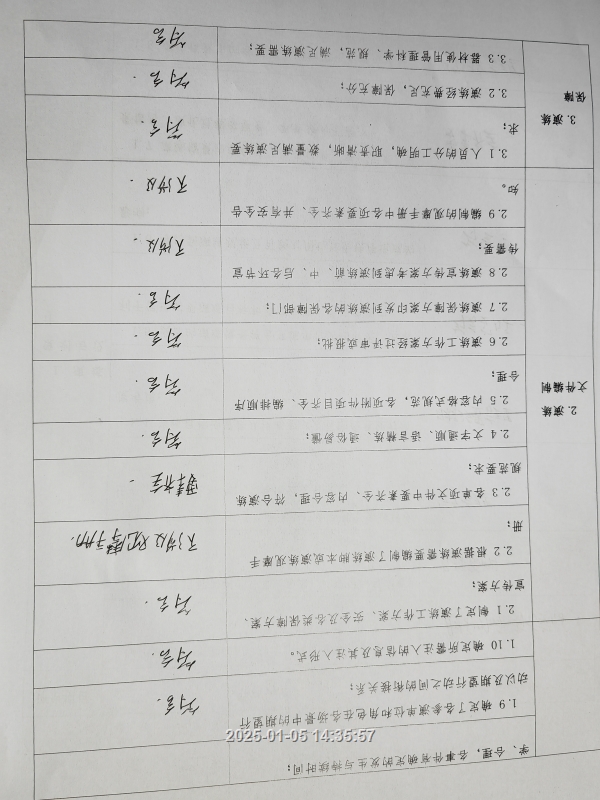 学、合理，各事件有确定的发生与持续时间；
1.9 确定了各参演单位和角色在各场景中的期望行
动以及期望行动之间的衔接关系；
符合.
1.10 确定所需注入的信息及其注入形式。
符合.
2. 演练
文件编制
2.1 制定了演练工作方案、安全及各类保障方案、
宣传方案；
符合.
2.2 根据演练需要编制了演练脚本或演练观摩手
册；
不涉及观摩手册.
2.3 各单项文件中要素齐全、内容合理，符合演练
规范要求；
要素齐全
2.4 文字通顺、语言精炼、通俗易懂；
符合.
2.5 内容格式规范，各项附件项目齐全、编排顺序
合理；
符合.
2.6 演练工作方案经过评审或报批；
符合.
2.7 演练保障方案印发到演练的各保障部门；
符合.
2.8 演练宣传方案考虑到演练前、中、后各环节宣
传需要；
不涉及.
2.9 编制的观摩手册中各项要素齐全、并有安全告
知。
不涉及.
3. 演练
保障
3.1 人员的分工明确，职责清晰，数量满足演练要
求；
符合.
3.2 演练经费充足，保障充分；
符合.
3.3 器材使用管理科学、规范，满足演练需要；
符合.
2025-01-05 14:35:57